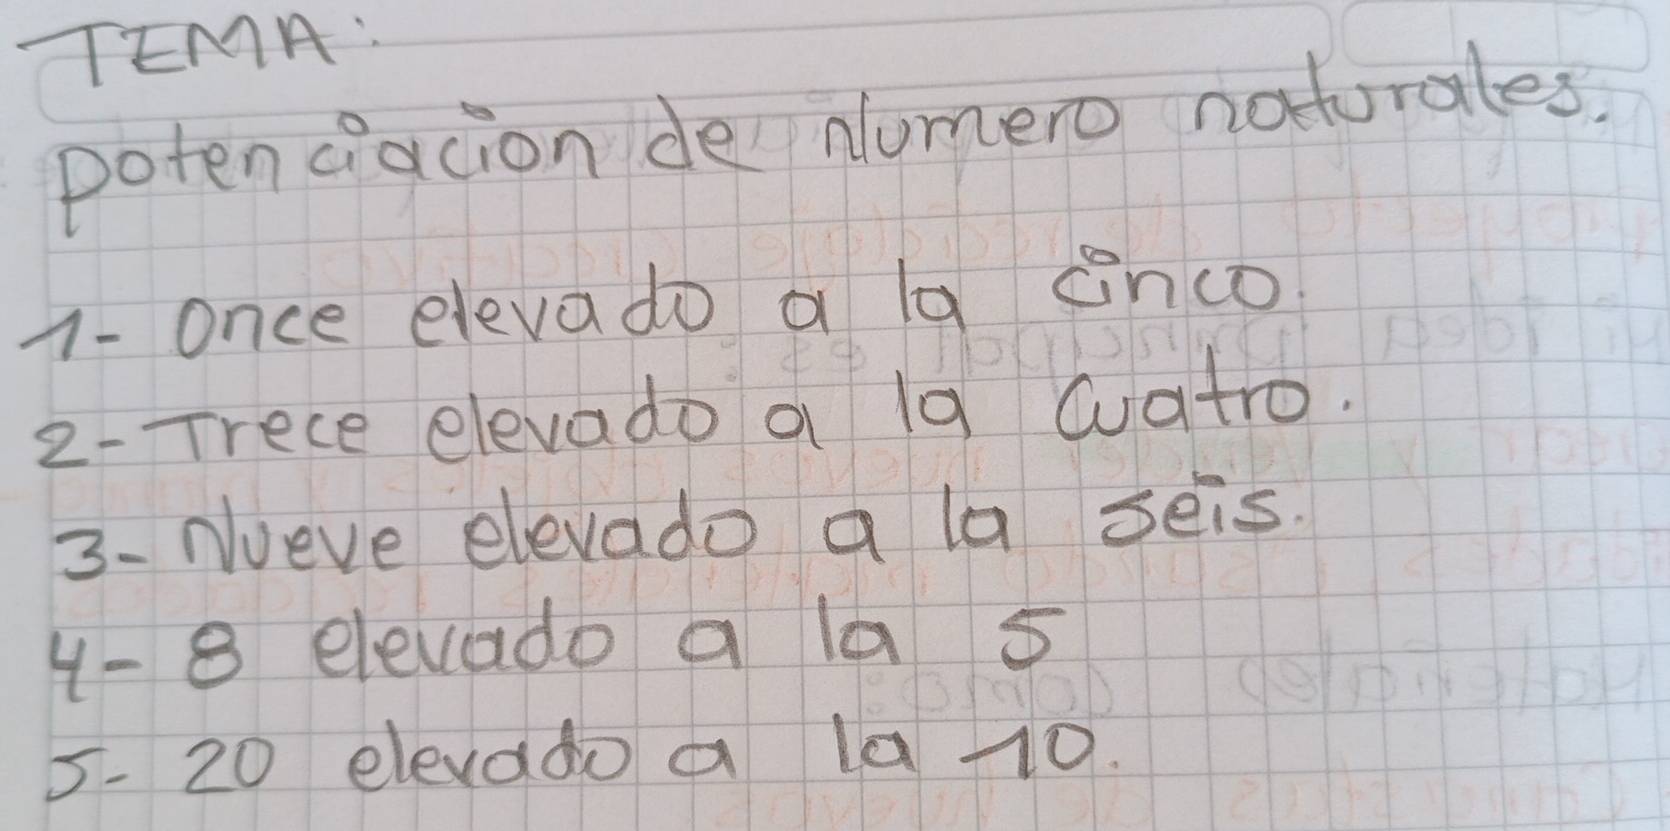 TEMA:
potenciacion de Numero naturales.
1- Once elevado a la cinco.
2- Trece elevado a la cuatro.
3- Nueve elevado a la seis.
4- 8 elevado a la 5
5- 20 elevado a la 10.